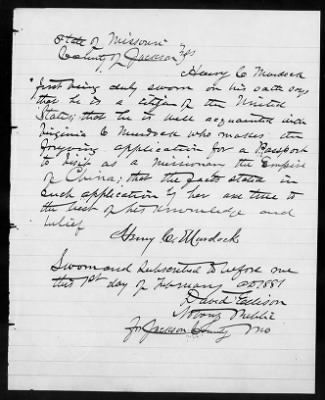 State of Missouri
County of Jackson } ss
Henry C Murdock
first being duly sworn on his oath says
that he is a citizen of the United
States; that he is well acquainted with
Virginia C Murdock who makes the
foregoing application for a Passport
to visit as a missionary the Empire
of China; that the facts stated in
such application by her are true to
the best of his knowledge and
belief
Henry C. Murdock
Sworn and subscribed to before me
this 1st day of February AD 1881
David Ellison
Notary Public
for Jackson County Mo